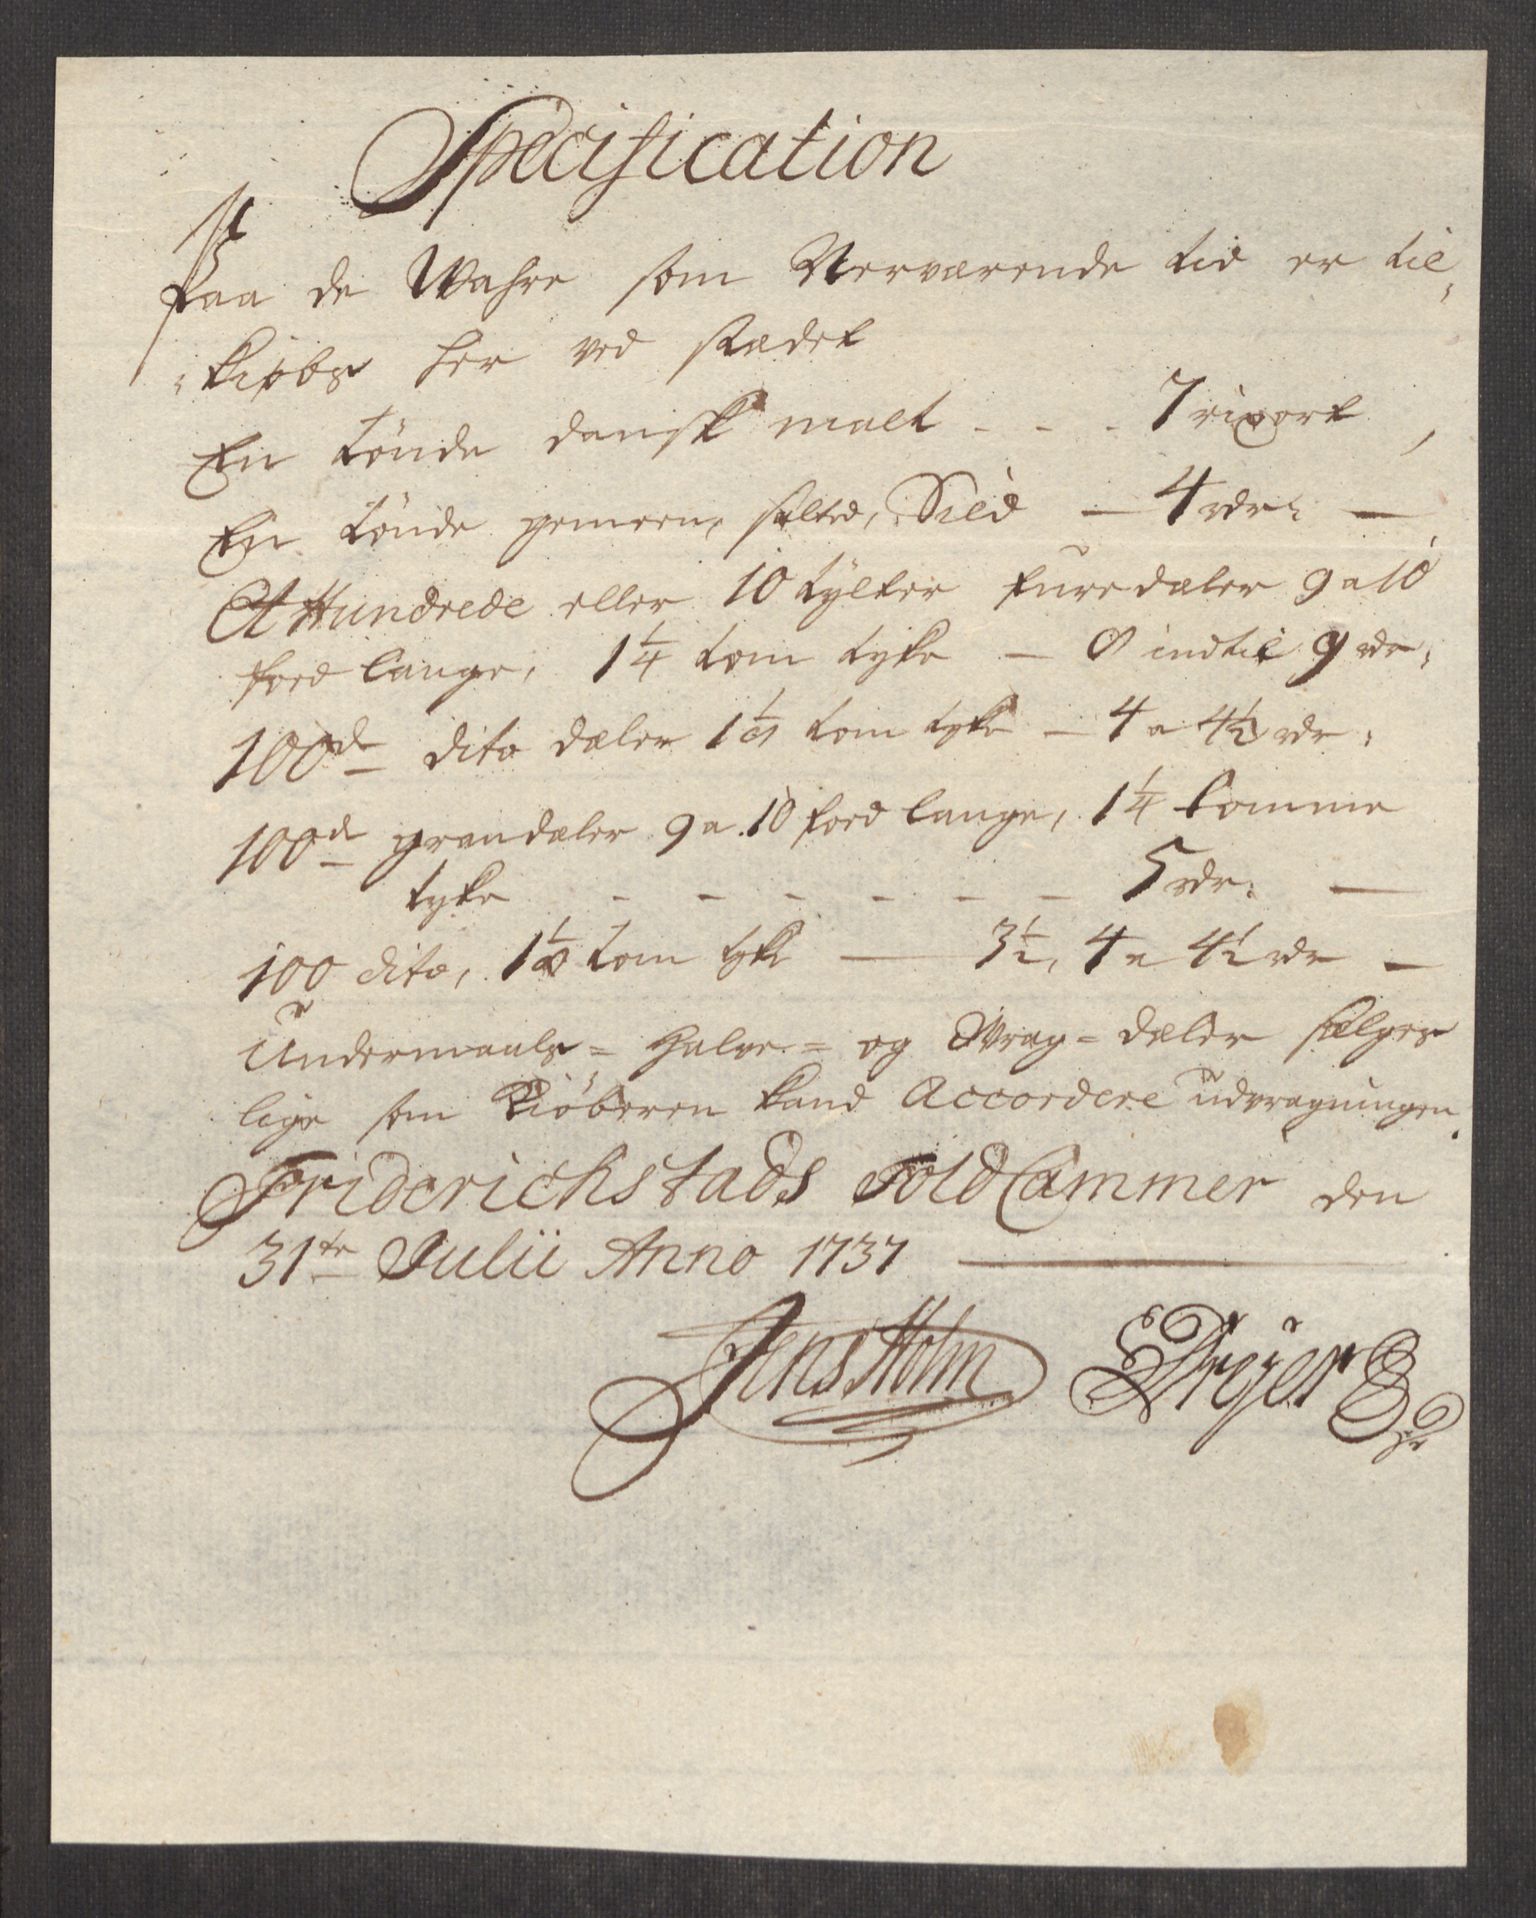 Specification
Paa de Wahre som Nerværende tid er til,
,kiøbs her ved stædet
En tønde dansk malt - - - 7 rixort,
En tønde gemeen, salted, Sild — 4 rdr: —
Et Hundrede eller 10 tylter furedæler 9 a 10
foed lange, 1 1/4 tom tyke — 8 indtil 9 rdr:
100de dito dæler 1 1/8 tom tyke — 4 a 4 1/2 rdr:
100de grandæler 9 a 10 foed lange, 1 1/4 tomme
tyke - - - - - - 5 rdr: —
100 dito, 1 1/8 tom tyke — 3 1/2, 4 a 4 1/2 rdr —
Undermaals = Halve = og Wrag = dæler sælges
lige som Kiøberen kand Accordere udvragningen.
Friderichstads Told Cammer den
31te Julii Anno 1737
Jens Holm EDreyer